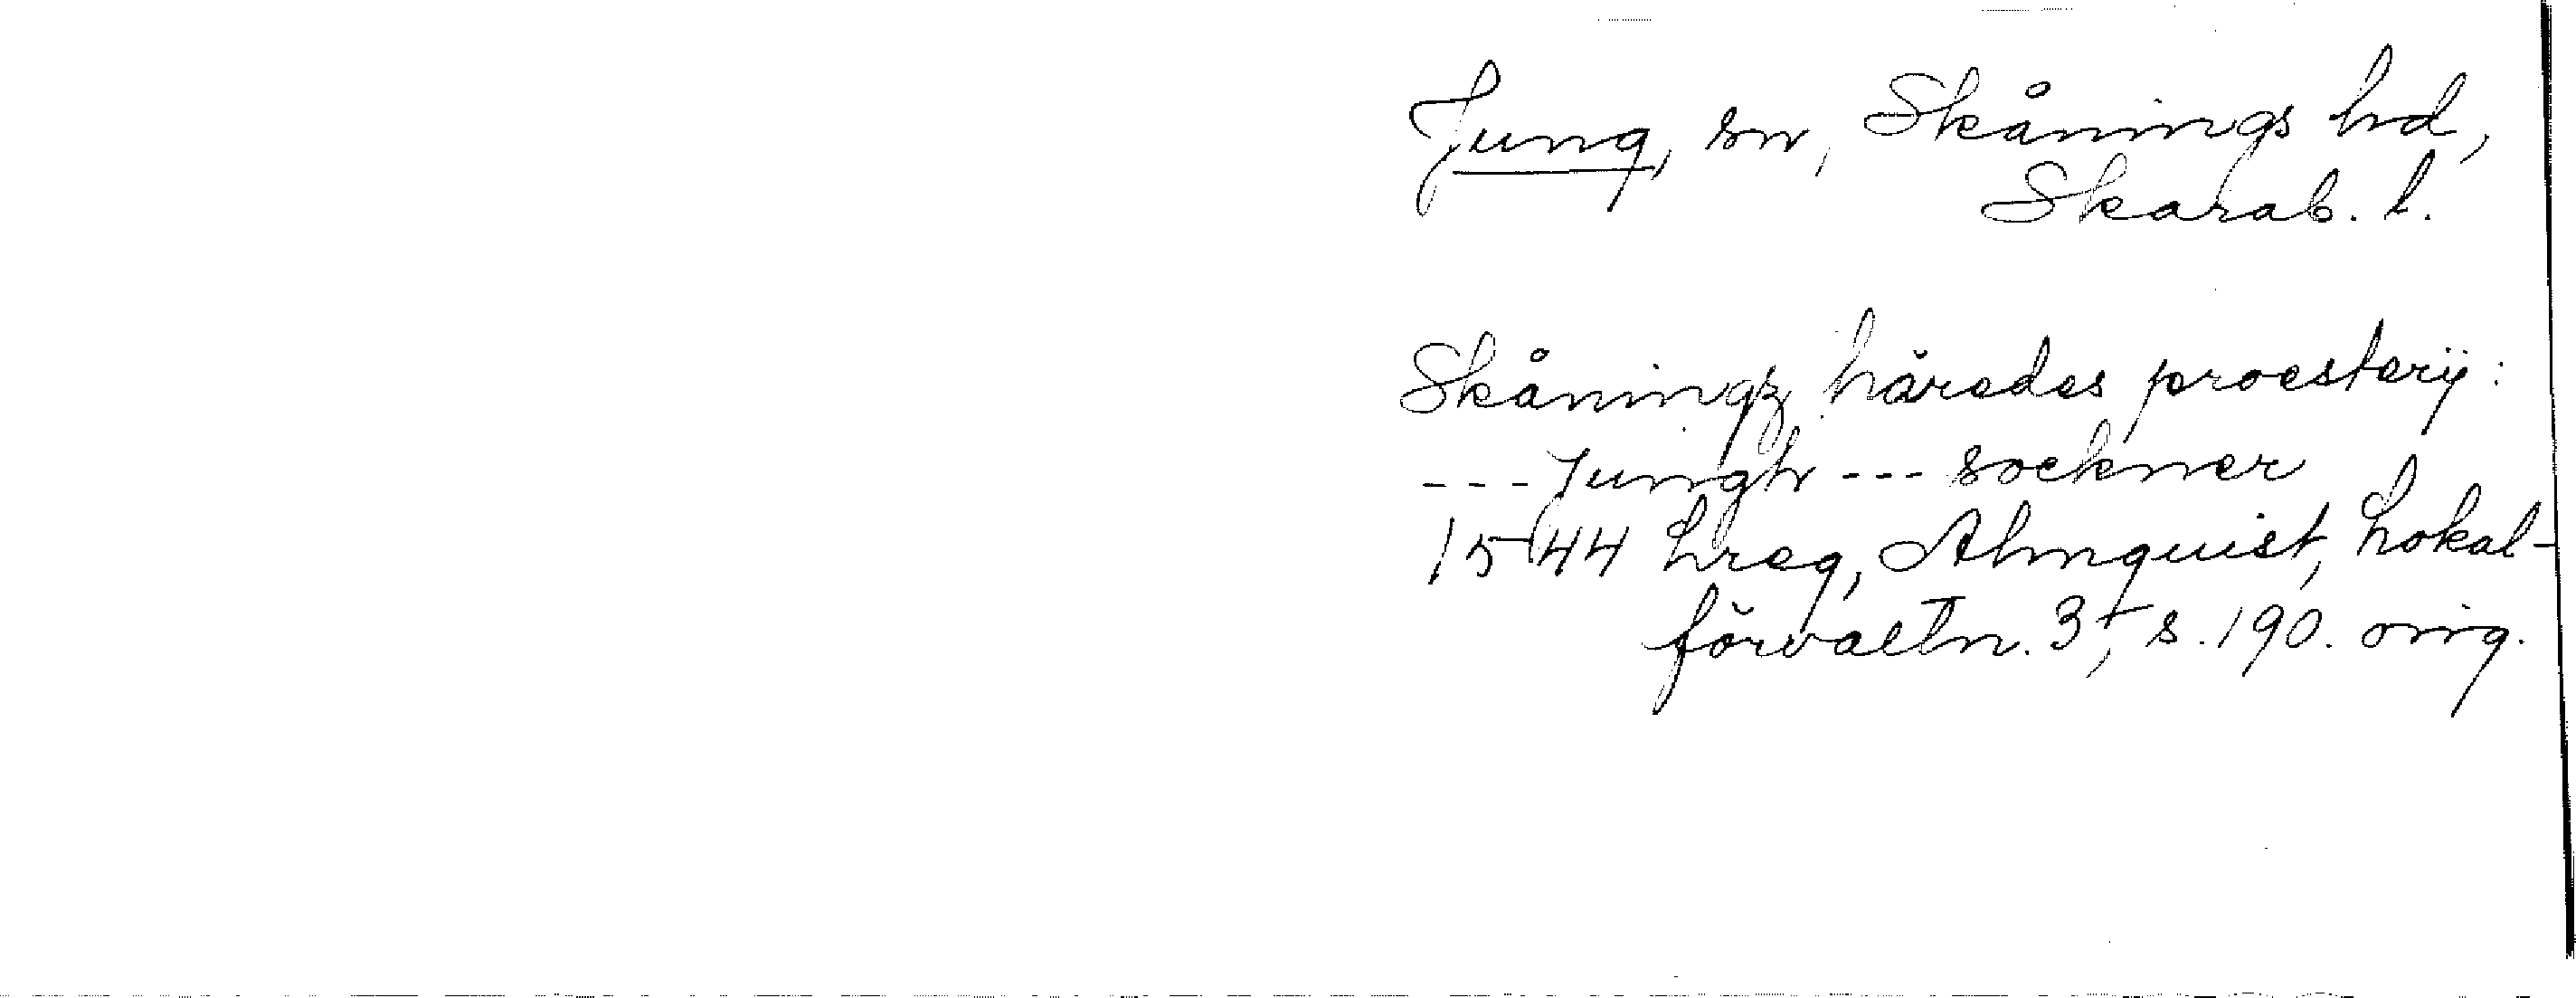 Jung, sn, Skånings hd,
Skarab. l.
Skåningz häredes proesterij:
--- Jungh --- sockner
1544 hreg, Almquist, Lokal-
förvaltn. 3, s. 190. orig.